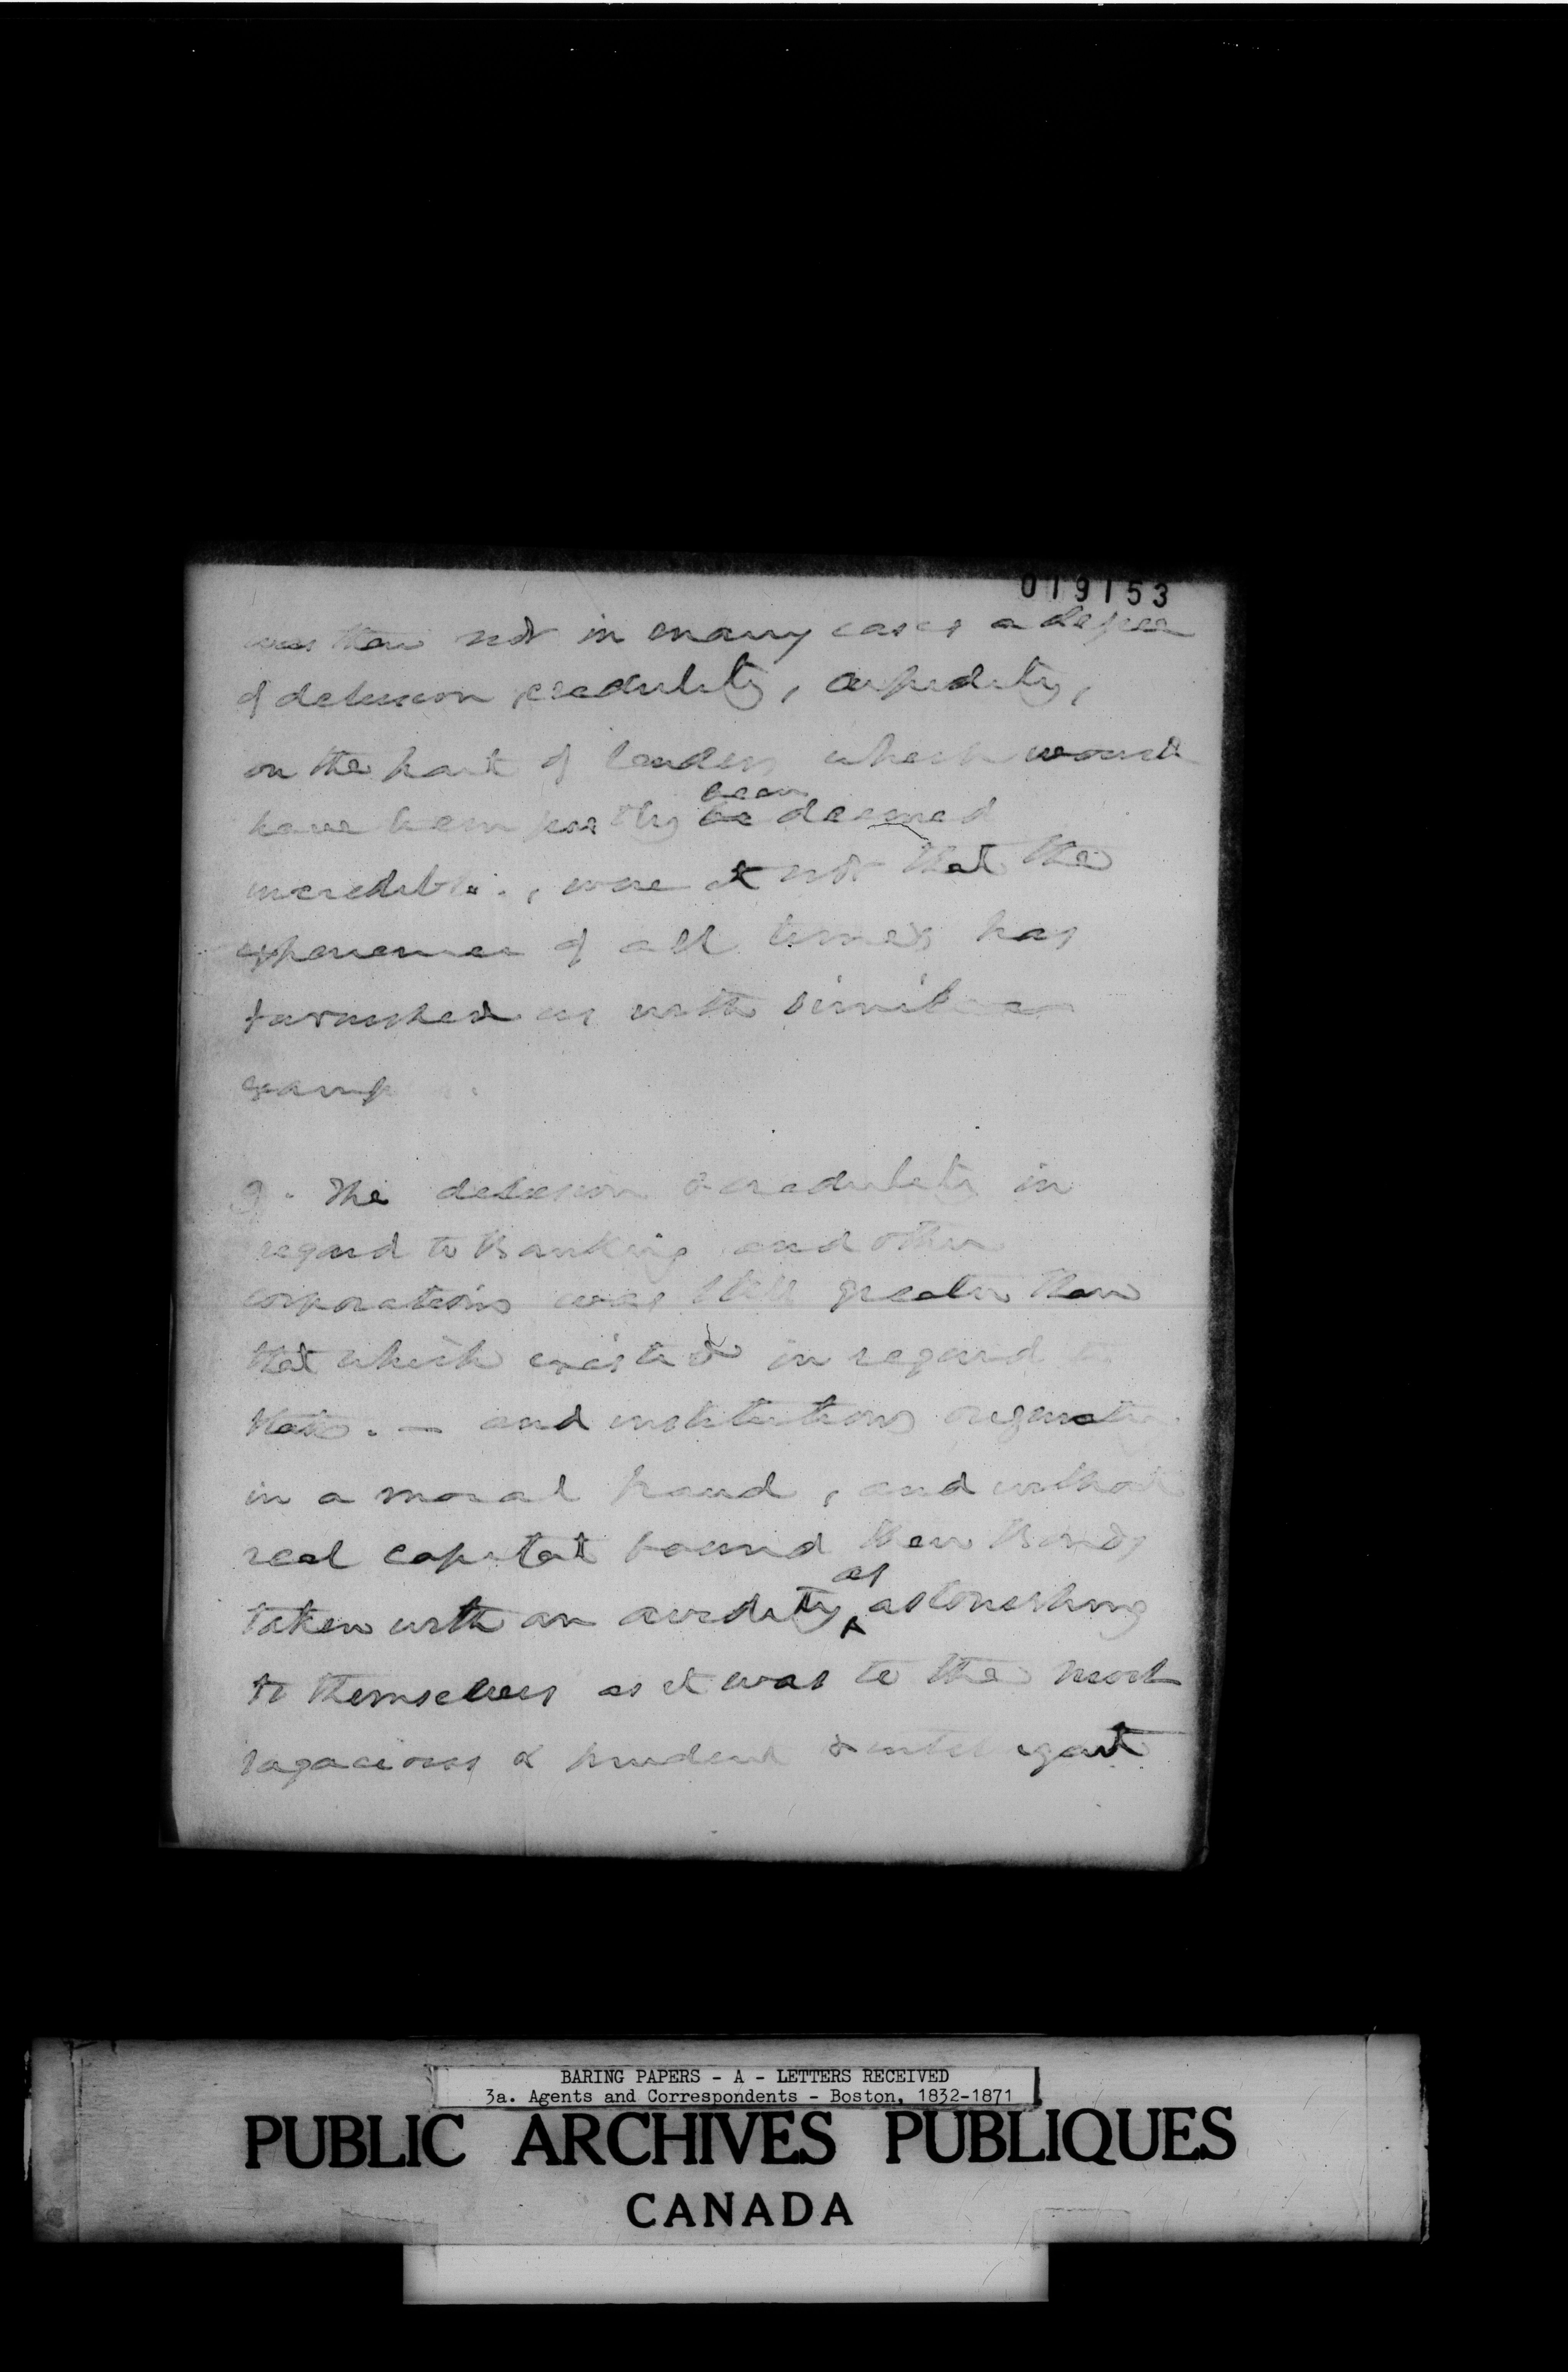 019153
was there not in many cases a degree
of delusion, credulity, cupidity,
on the part of lenders which would
have been justly be been deemed
incredible, were it not that the
experience of all times has
furnished us with similar
examp
3. The delusion & credulity in
regard to Banking and other
corporations was still greater than
that which existed in regard to
States. — and institutions originating
in a moral fraud, and without
real capital found their Bonds
taken with an avidity as astonishing
to themselves as it was to the most
sagacious & prudent & intelligent
BARING PAPERS - A - LETTERS RECEIVED
3a. Agents and Correspondents - Boston, 1832-1871
PUBLIC ARCHIVES PUBLIQUES
CANADA